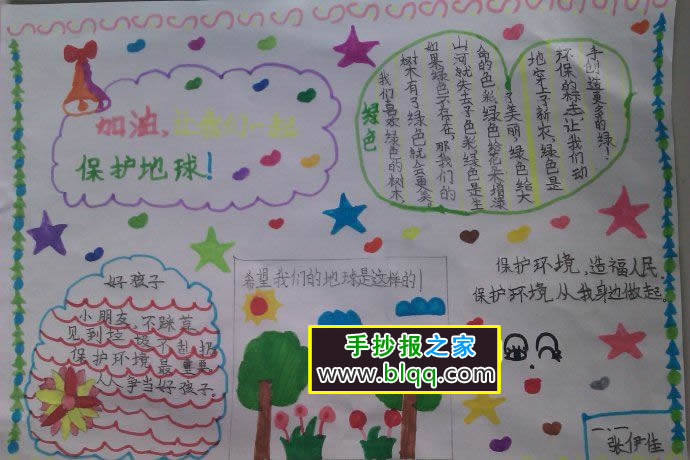 加油，让我们一起
保护地球！
绿色
我们喜爱绿色的树木
树木有了绿色就会更美
如果绿色不存在，那我们的
山河就失去了色彩，绿色是生
命的色彩，绿色给花朵增添
了美丽，绿色给大
地穿上了新衣，绿色是
环保的标志，让我们动
手创造更多的绿！
好孩子
小朋友，不踩草
见到垃圾不乱扔
保护环境最重要
人人争当好孩子。
希望我们的地球是这样的！
保护环境，造福人民。
保护环境，从我身边做起。
手抄报之家
www.blqq.com
一.一
张伊佳